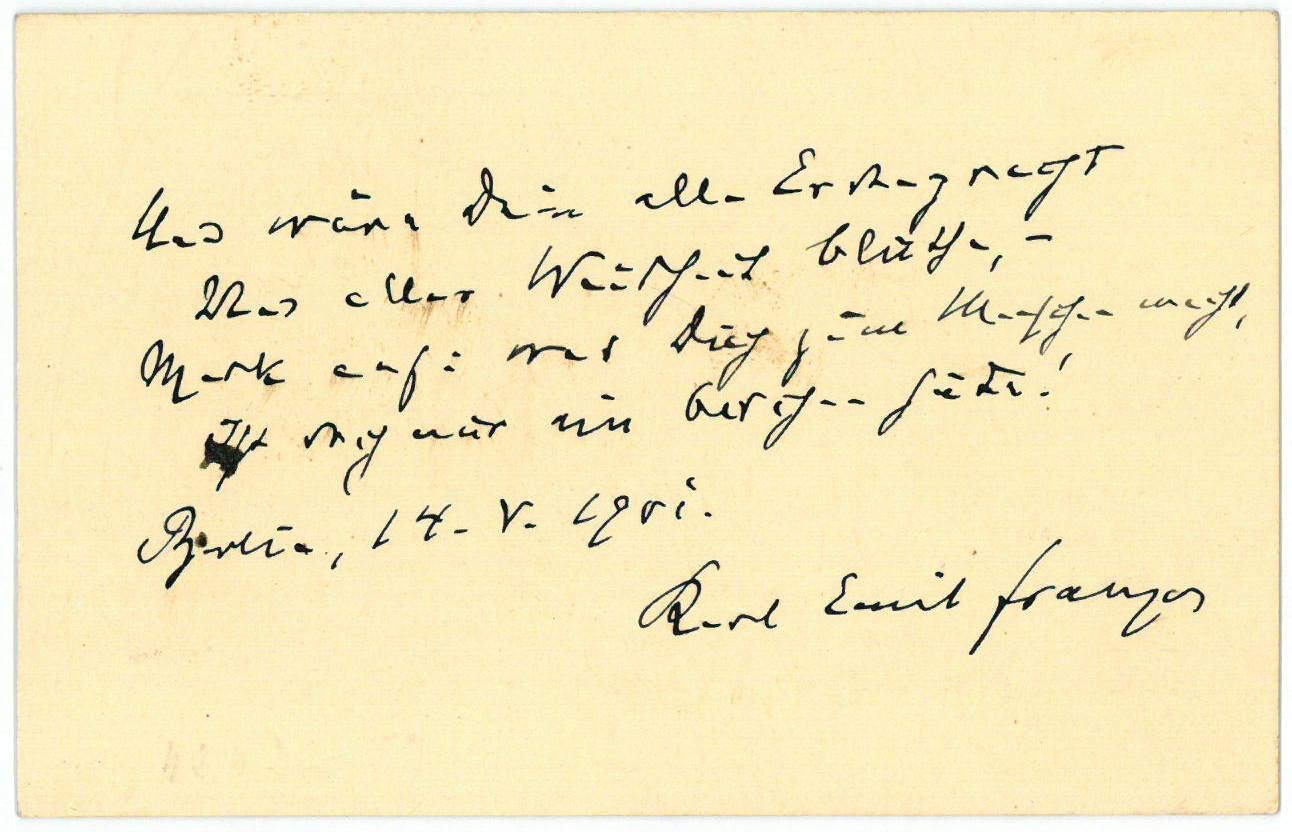 Und wäre Dein alle Erdenpracht
Und aller Weisheit Blüthe, –
Merk auf: was Dich zum Menschen macht,
Ist doch nur ein bischen Güte!
Berlin, 14. V. 1901.
Karl Emil Franzos